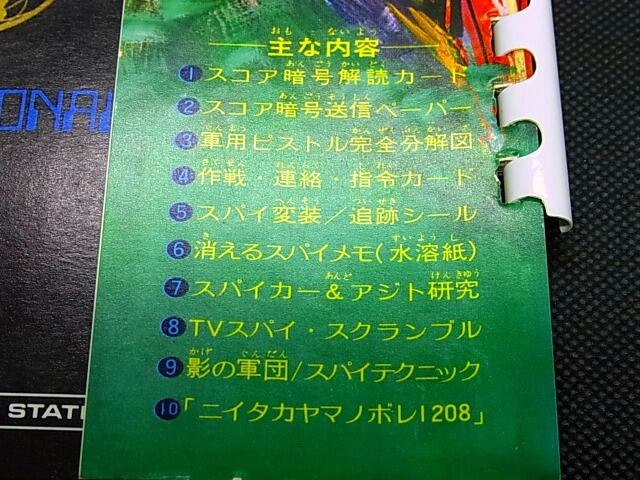 主な内容
1 スコア暗号解読カード
2 スコア暗号送信ペーパー
3 軍用ピストル完全分解図
4 作戦・連絡・指令カード
5 スパイ変装/追跡シール
6 消えるスパイメモ(水溶紙)
7 スパイカー&アジト研究
8 TVスパイ・スクランブル
9 影の軍団/スパイテクニック
10 「ニイタカヤマノボレ1208」
ONAL
STATE